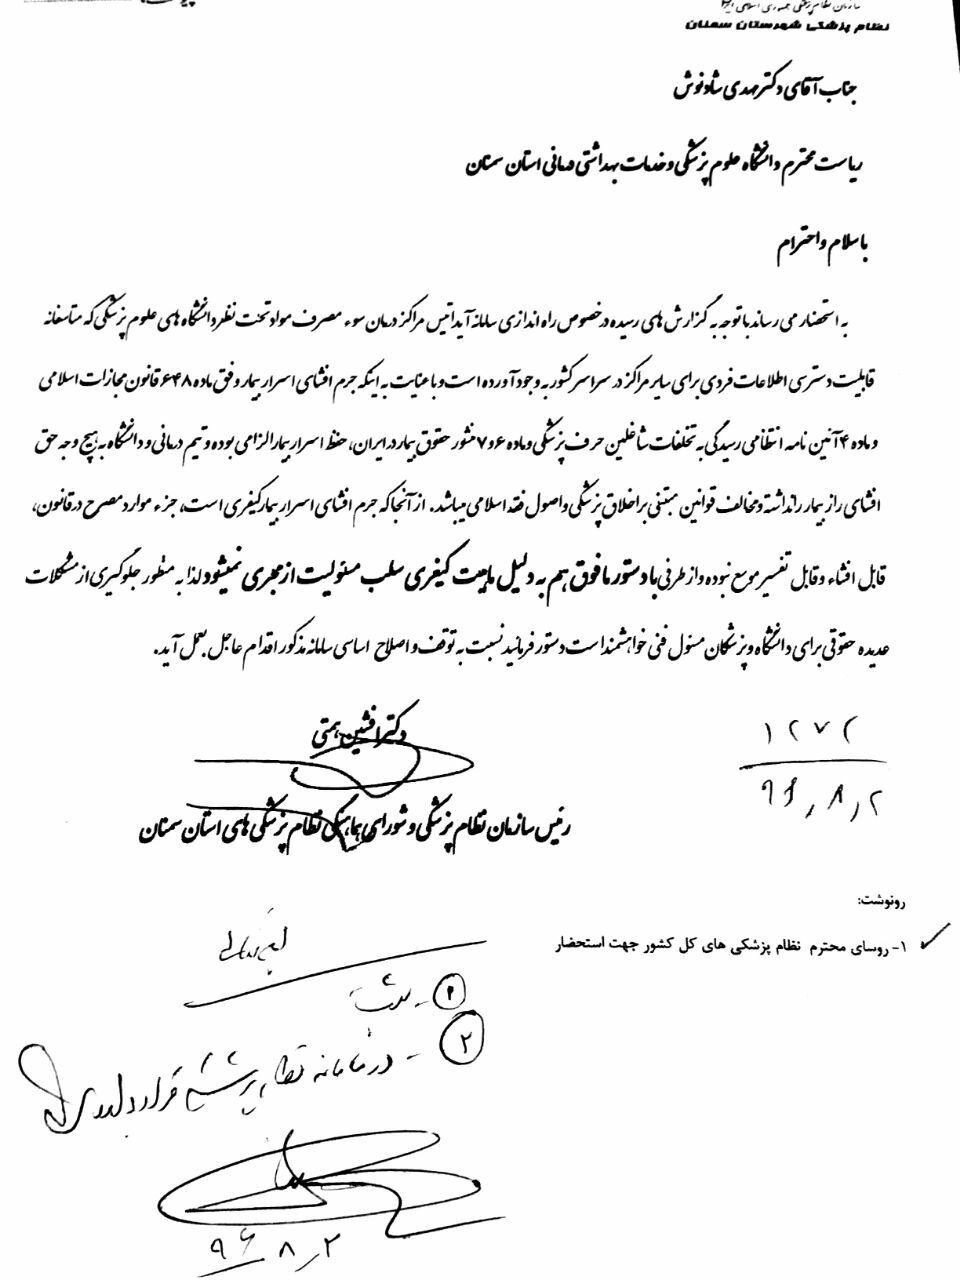 سازمان نظام پزشکی جمهوری اسلامی ایران
نظام پزشکی شهرستان سمنان
جناب آقای دکتر مهدی شادنوش
ریاست محترم دانشگاه علوم پزشکی و خدمات بهداشتی درمانی استان سمنان
با سلام و احترام
به استحضار می رساند با توجه به گزارش های رسیده درخصوص راه اندازی سامانه آیداتیس مراکز درمان سوء مصرف مواد تحت نظر دانشگاه های علوم پزشکی که متاسفانه
قابلیت دسترسی اطلاعات فردی برای سایر مراکز در سراسر کشور به وجود آورده است و با عنایت به اینکه جرم افشای اسرار بیمار وفق ماده ۶۴۸ قانون مجازات اسلامی
و ماده ۴ آئین نامه انتظامی رسیدگی به تخلفات شاغلین حرف پزشکی و ماده ۶ و ۷ منشور حقوق بیمار در ایران، حفظ اسرار بیمار الزامی بوده و تیم درمانی و دانشگاه به هیچ وجه حق
افشای راز بیمار را نداشته و مخالف قوانین مبتنی بر اخلاق پزشکی و اصول فقه اسلامی میباشد. از آنجا که جرم افشای اسرار بیمار کیفری است، جزء موارد مصرح در قانون،
قابل افشاء و قابل تفسیر موسع نبوده و از طرفی با دستور مافوق هم به دلیل ماهیت کیفری سلب مسئولیت از مجری نمیشود لذا به منظور جلوگیری از مشکلات
عدیده حقوقی برای دانشگاه و پزشکان مسئول فنی خواهشمند است دستور فرمائید نسبت به توقف و اصلاح اساسی سامانه مذکور اقدام عاجل بعمل آید.
دکتر افشین همتی
۱۲۷۲
۹۶/۸/۲
رئیس سازمان نظام پزشکی و شورای هماهنگی نظام پزشکی های استان سمنان
رونوشت:
۱- روسای محترم نظام پزشکی های کل کشور جهت استحضار
۱ - ثبت
۲ - در سامانه نظام پزشکی قرار داده
۹۶/۸/۲